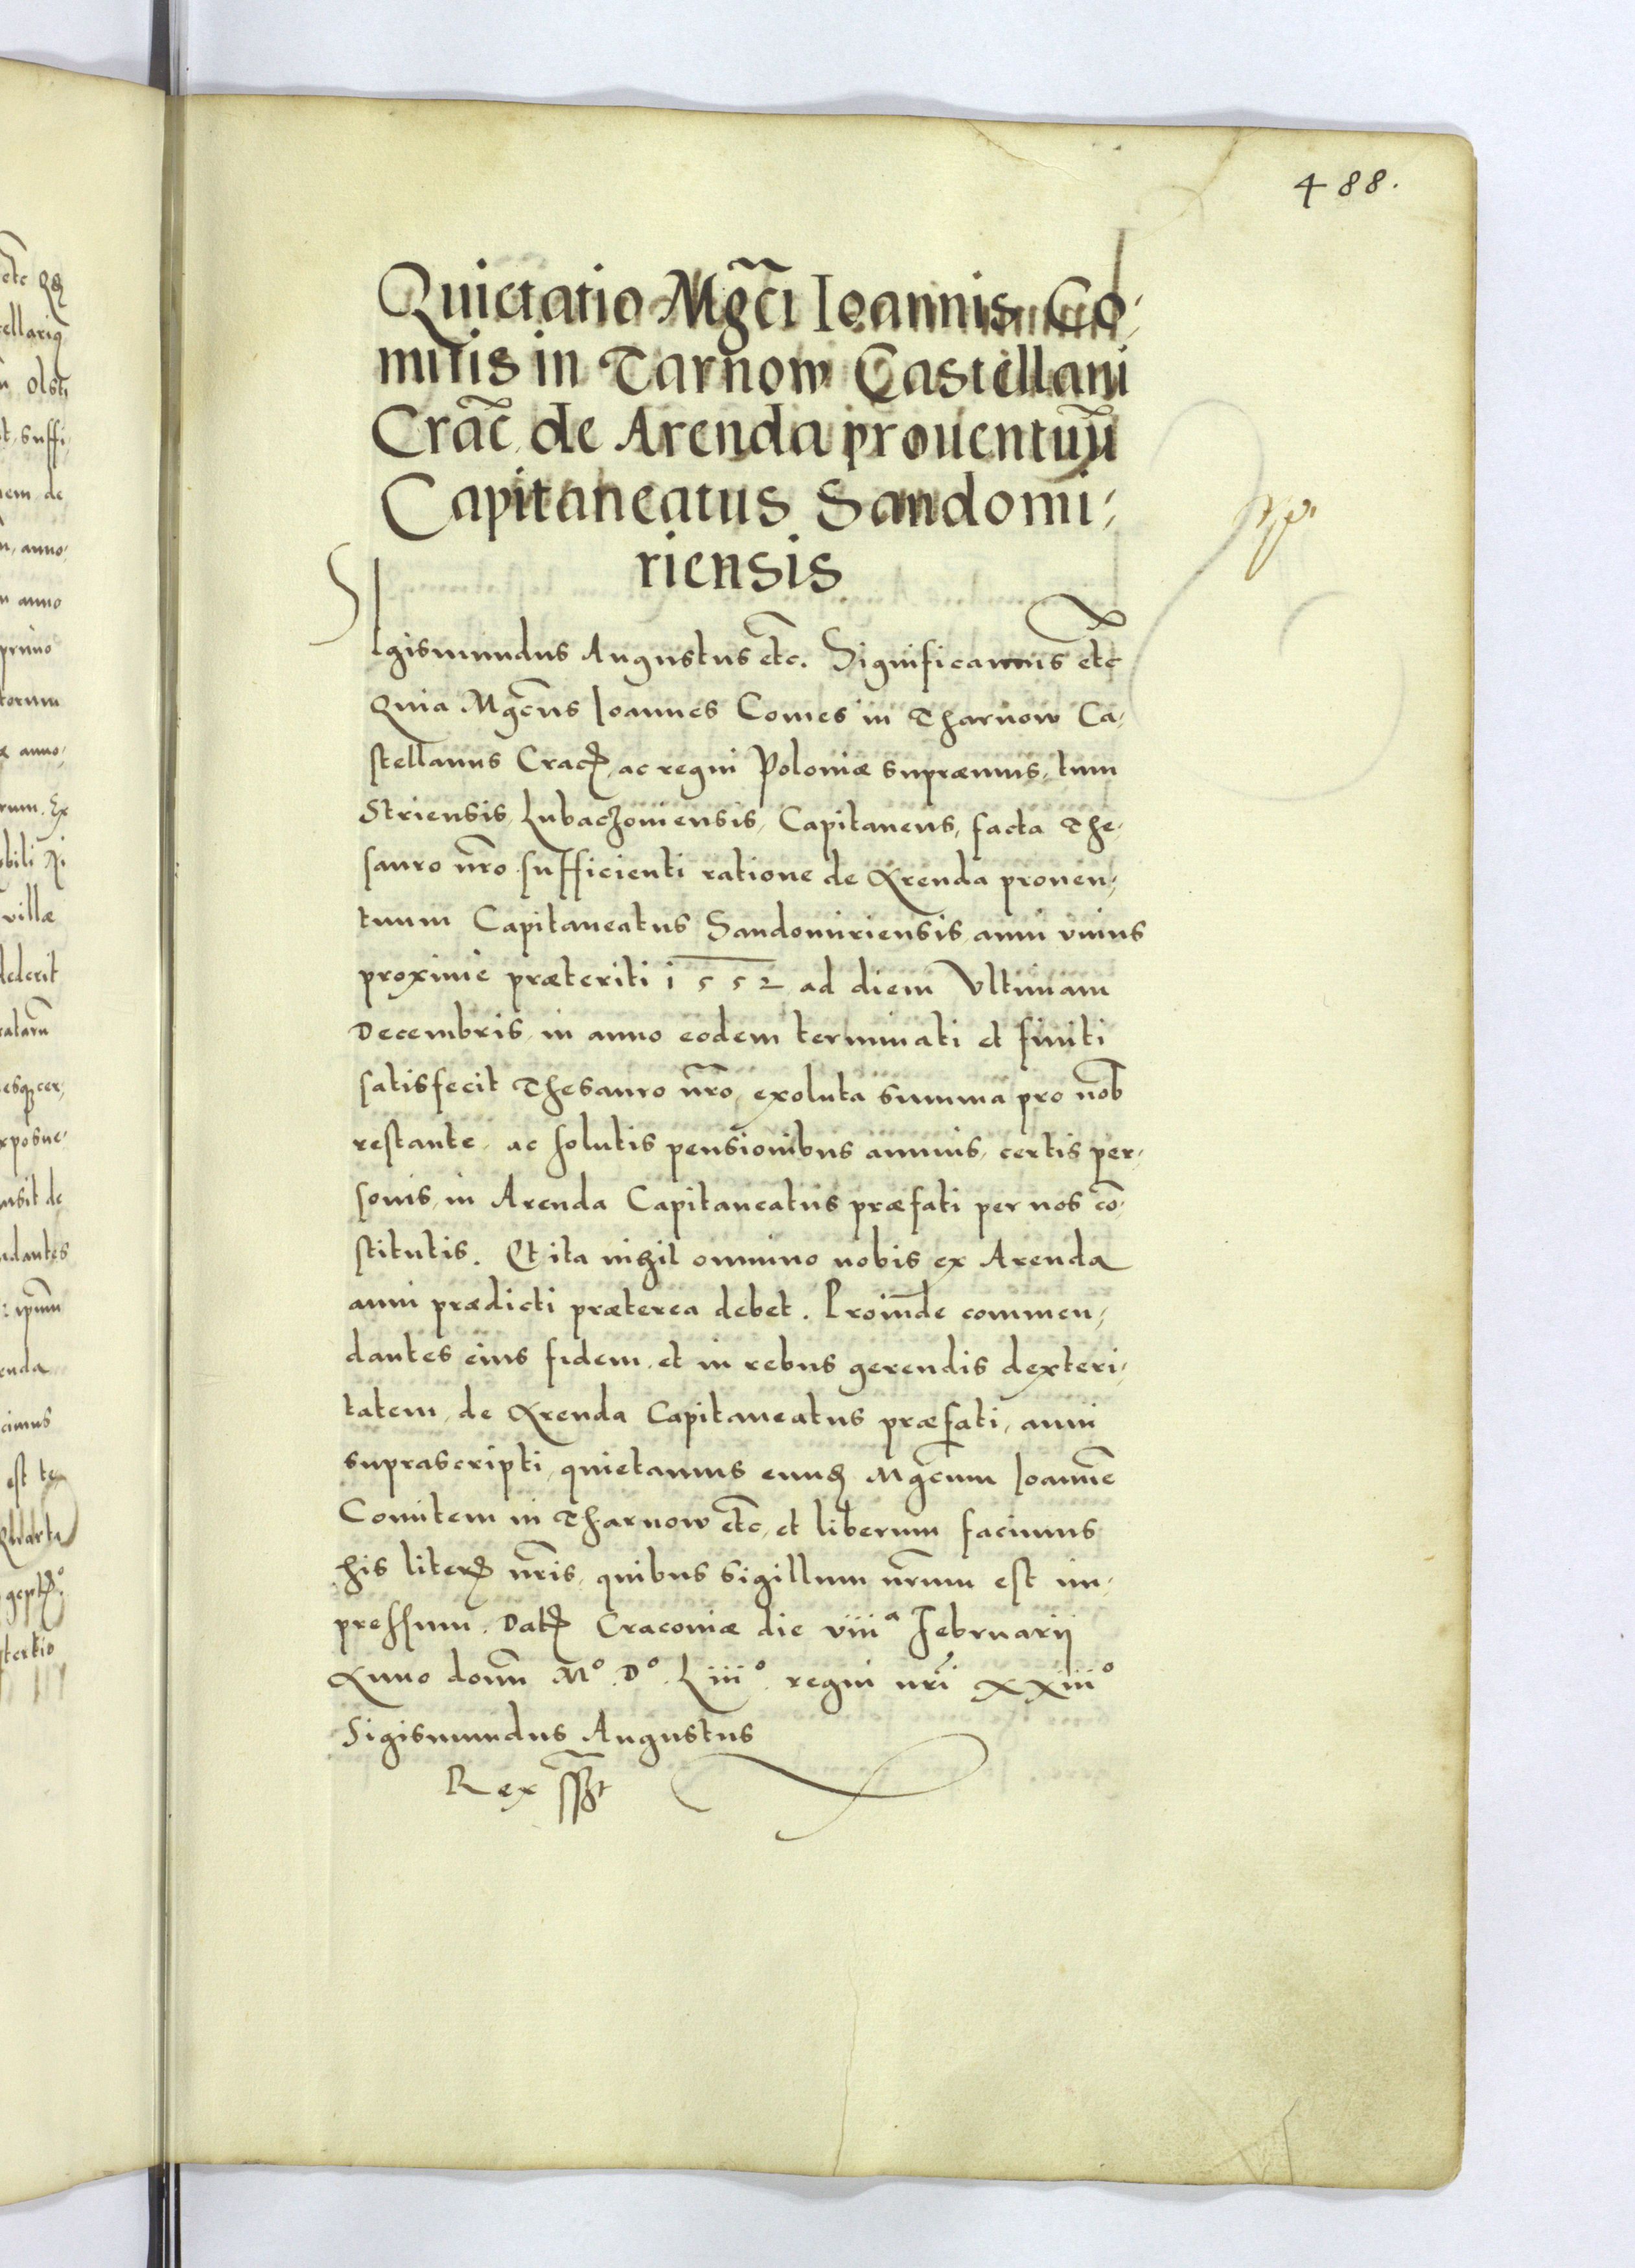 488.
Quietatio Mgči Ioannis Co-
mitis in Tarnow Castellani
Crac̃. de Arenda prouentuũ
Capitaneatus Sandomi-
riensis
Sigismundus Augustus etc̃. Significamus etc̃
Quia Mgc̃us Ioannes Comes in Tharnow Ca-
stellanus Cracꝭ, ac regni Poloniæ supræmus, tum
Striensis, Lubaczouiensis, Capitaneus, facta The-
sauro nr̃o sufficienti ratione de Arenda prouen-
tuum Capitaneatus Sandomiriensis, anni vnius
proxime præteriti 1552 ad diem Vltimam
Decembris, in anno eodem terminati et finiti
satisfecit Thesauro nr̃o, exoluta summa pro nob̃
restante, ac solutis pensionibus annuis, certis per-
sonis, in Arenda Capitaneatus præfati per nos cõ-
stitutis. Et ita nihil omnino nobis ex Arenda
anni prædicti præterea debet. Proinde commen-
dantes eius fidem, et in rebus gerendis dexteri-
tatem, de Arenda Capitaneatus præfati, anni
suprascripti, quietamus eundꝭ Mgc̃um Ioannẽ
Comitem in Tharnow etc̃, et liberum facimus
his literꝭ nr̃is, quibus sigillum nr̃um est im-
pressum. Datꝭ Cracouiæ die viiiª Februarij
Anno domĩ Mº. Dº. Liiiº. regni nr̃i xxiiiº
Sigismundus Augustus
Rex sszt